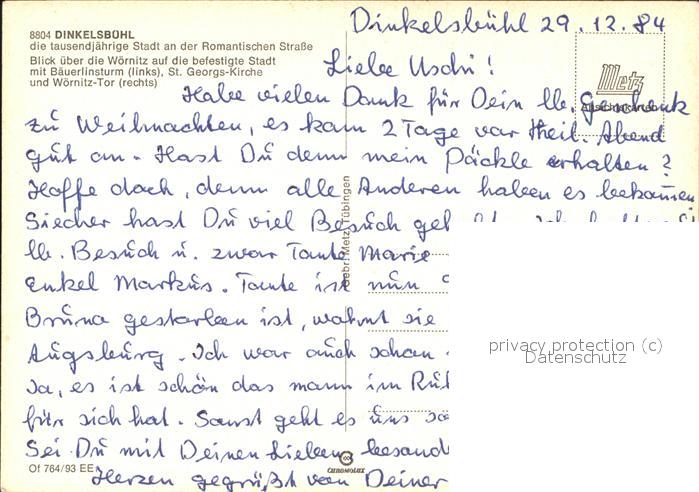 8804 DINKELSBÜHL
die tausendjährige Stadt an der Romantischen Straße
Blick über die Wörnitz auf die befestigte Stadt
mit Bäuerlinsturm (links), St. Georgs-Kirche
und Wörnitz-Tor (rechts)
Metz
Dinkelsbühl 29.12.84
Liebe Uschi!
Habe vielen Dank für Dein lb. Geschenk
zu Weihnachten, es kam 2 Tage vor Heil. Abend
gut an. Hast Du denn mein Päckle erhalten?
Hoffe doch, denn alle Anderen haben es bekommen
Siecher hast Du viel Besuch
lb. Besuch u. zwar Tante Marie
Enkel Markus. Tante ist nun
Bruno gestorben ist, wohnt sie
Augsburg. Ich war auch schon
Ja, es ist schön das mann im
für sich hat. Sonst geht es uns
Sei Du mit Deinen Lieben
Herzen gegrüßt von Deiner
Gebr. Metz, Tübingen
Of 764/93 EE
CHROMOLUX
privacy protection (c)
Datenschutz